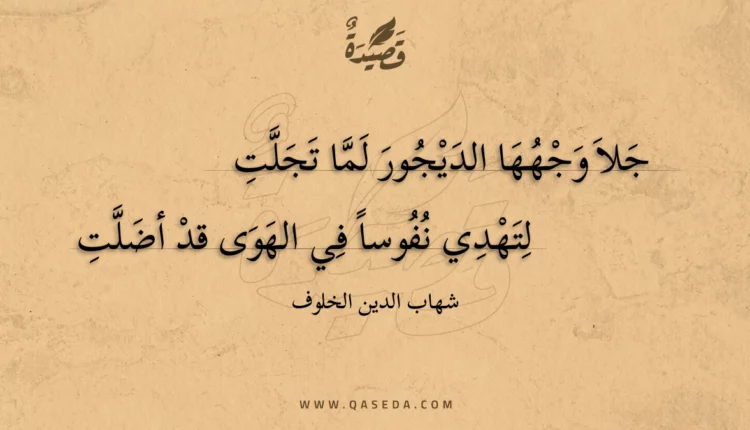 قَصِيدَةٌ
جَلاَ وَجْهُهَا الدَيْجُورَ لَمَّا تَجَلَّتِ
لِتَهْدِي نُفُوساً فِي الهَوَى قدْ أضَلَّتِ
شهاب الدين الخلوف
WWW.QASEDA.COM